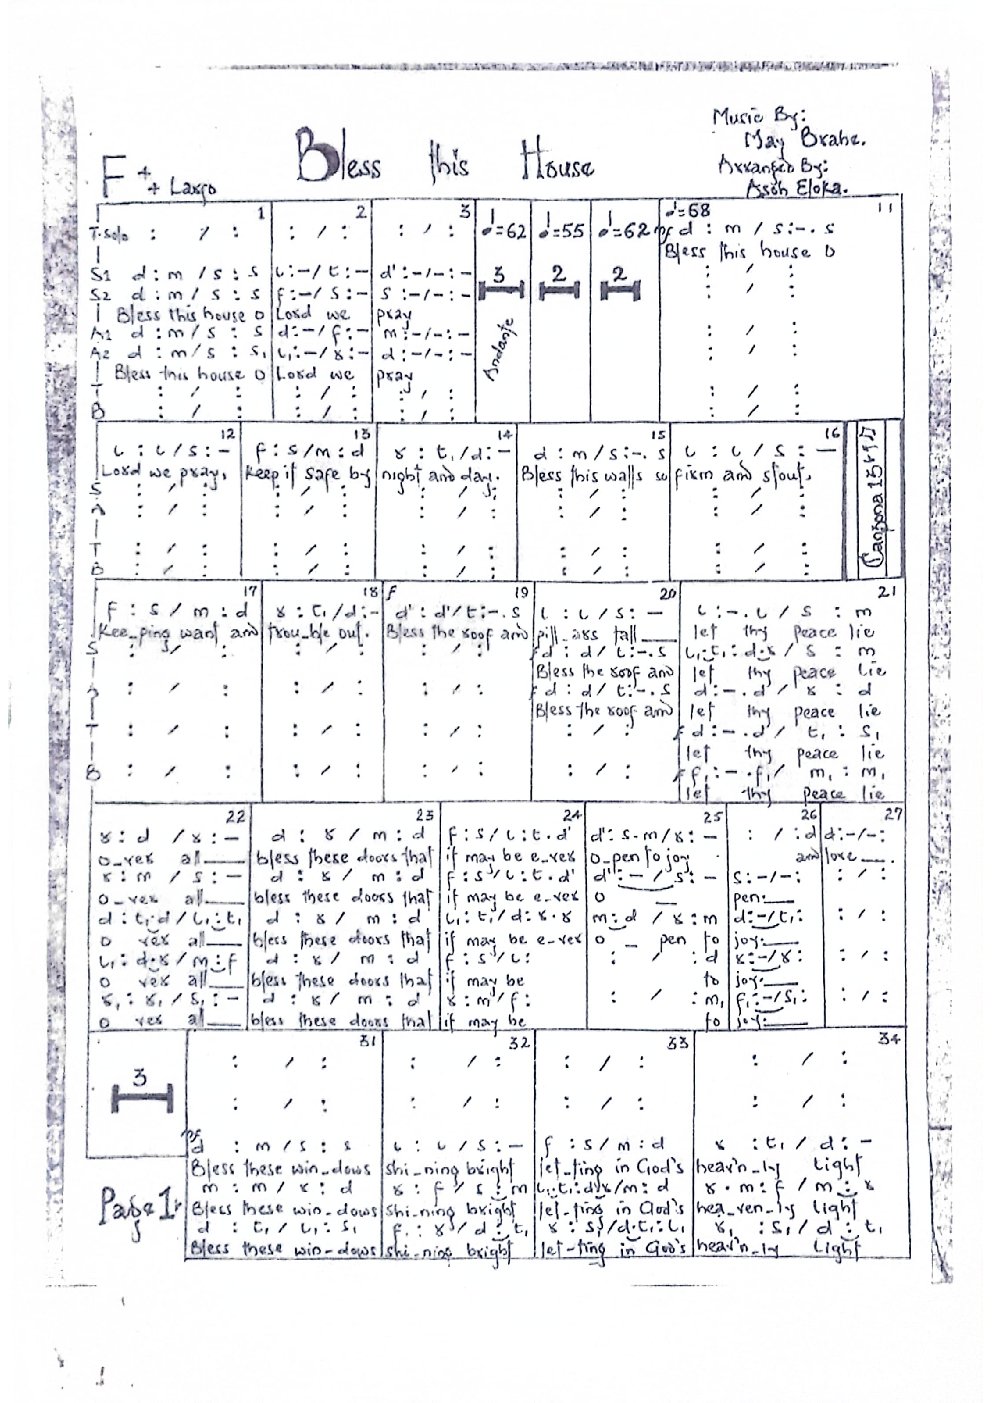 Music By:
May Brahe.
Arranged By:
Asoh Eloka.
Bless this House
F + + Largo
1 2 3 ♩=62 ♩=55 ♩=62 ♩=68 11
T.Solo : / : : / : : / : mf d : m / s :-. s
Bless this house O
S1 d : m / s : s l :- / t :- d' :-/-: - 3 2 2
S2 d : m / s : s f :- / s :- s :-/-: -
Bless this house O Lord we pray
A1 d : m / s : s d :-/ f :- m :-/-: - Andante
A2 d : m / s : s₁ l₁ :-/ r :- d :-/-: -
Bless this house O Lord we pray
T : / : : / : : / : : / :
B : / : : / : : / : : / :
12 13 14 15 16
l : l / s : - f : s / m : d r : t₁ / d : - d : m / s :-. s l : l / s : -
Lord we pray, Keep it safe by night and day. Bless this walls so firm and stout,
S : / : : / : : / : : / :
A : / : : / : : / : : / :
T : / : : / : : / : : / :
B : / : : / : : / : : / :
17 18 19 20 21
f : s / m : d r : t₁ / d :- f d' : d' / t :-. s l : l / s : - l :-. l / s : m
Kee_ping want and trou_ble out. Bless the roof and pill_ars tall___ let thy peace lie
S : / : : / : : / : f d : d / t :-. s l₁ : t₁ : d : r / s : m
Bless the roof and let thy peace lie
A : / : : / : : / : f d : d / t :-. s d :-. d / r : d
Bless the roof and let thy peace lie
T : / : : / : : / : : / : f d :-. d / t₁ : s₁
let thy peace lie
B : / : : / : : / : : / : f f₁ :-. f₁ / m₁ : m₁
let thy peace lie
22 23 24 25 26 27
r : d / r : - d : r / m : d f : s / l : t . d' d' : s . m / r : - : / : d d :-/-:
O_ver all___ bless these doors that it may be e_ver O_pen to joy and love___.
r : m / s : - d : r / m : d f : s / l : t . d' d' : - / s : - s :-/-: : / :
O_ver all___ bless these doors that it may be e_ver O _ pen:___
d : t₁ . d / l₁ : t₁ d : r / m : d l₁ : t₁ / d : r . r m : d / r : m d :-/ t₁ : : / :
O ver all___ bless these doors that it may be e_ver O _ pen to joy:___
l₁ : d . r / m : f d : r / m : d f : s / l : : / : d r :-/ r : : / :
O ver all___ bless these doors that it may be to joy:___
r₁ : r₁ / s₁ : - d : r / m : d r : m / f : : / : m₁ f₁ :-/ s₁ : : / :
O ver all___ bless these doors that it may be to joy:___
3 31 32 33 34
: / : : / : : / : : / :
: / : : / : : / : : / :
mf d : m / s : s l : l / s : - f : s / m : d r : t₁ / d : -
Bless these win_dows shi_ning bright let_ting in God's heav'n_ly light
m : m / r : d r : f / s : m l₁ : t₁ : d . r / m : d r . m : f / m : r
Bless these win_dows shi_ning bright let_ting in God's hea_ven_ly light
d : t₁ / l₁ : s₁ f₁ : r / d : t₁ r : s₁ / d . t₁ : l₁ r₁ : s₁ / d : t₁
Bless these win_dows shi_ning bright let_ting in God's heav'n_ly light
Page 1